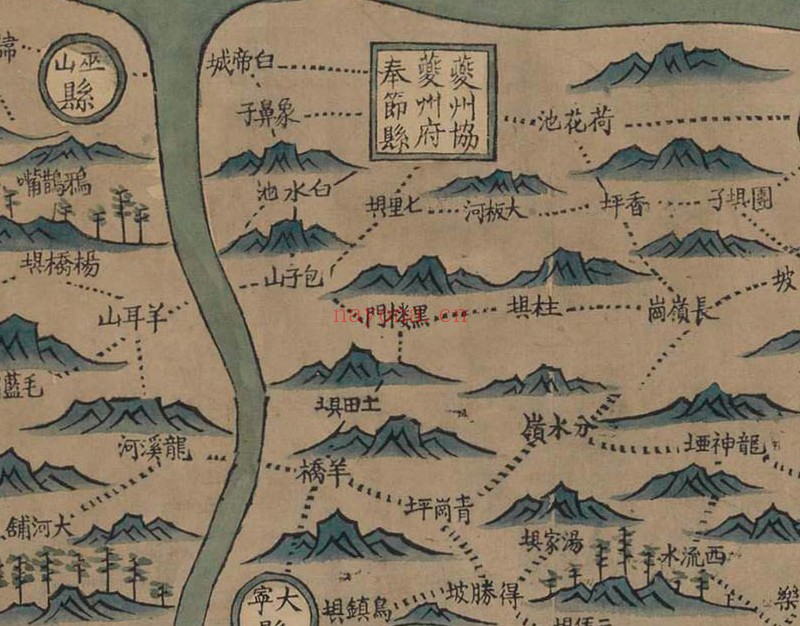 巫山縣
夔州協
夔州府
奉節縣
白帝城
象鼻子
荷花池
鴉鵲嘴
白水池
七里垻
大板河
香坪
團垻子
楊橋垻
包子山
坡
羊耳山
黑樓門
柱垻
長嶺崗
毛藍
土田垻
分水嶺
龍神埡
龍溪河
羊橋
青崗坪
大河舖
湯家垻
西流水
大寧縣
烏鎮垻
得勝坡